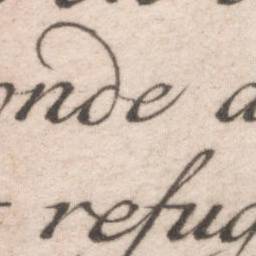 onde a
refug